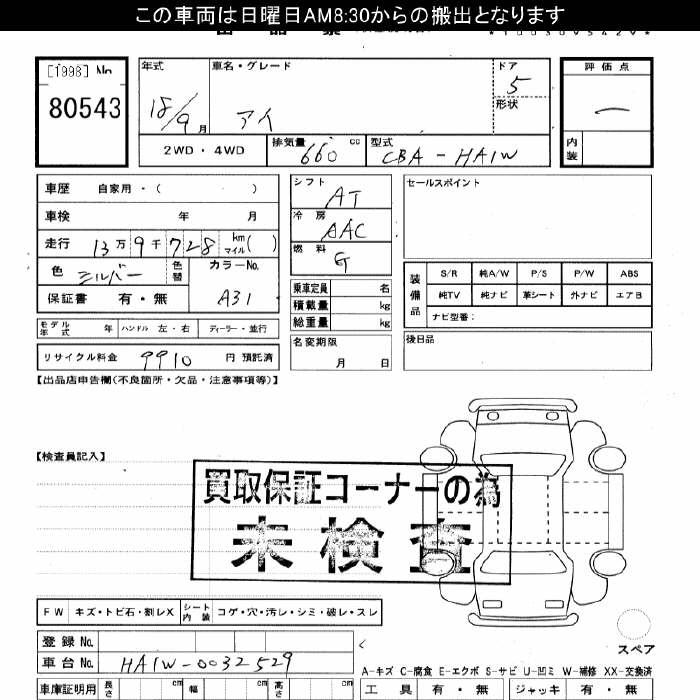 この車両は日曜日AM8:30からの搬出となります
[1998] No 80543
年式 18/9月
車名・グレード アイ
ドア 5
形状
評価点 ー
内装
2WD・4WD
排気量 660 cc
型式 CBA-HA1W
車歴 自家用・( )
車検 年 月
走行 13万9千728 km マイル( )
色 シルバー 色替
カラーNo. A31
保証書 有・無
シフト AT
冷房 AAC
燃料 G
乗車定員 名
積載量 kg
総重量 kg
名変期限 月 日
セールスポイント
装備品
S/R 純A/W P/S P/W ABS
純TV 純ナビ 革シート 外ナビ エアB
ナビ型番:
後日品
モデル年式 年 ハンドル 左・右 ディーラー・並行
リサイクル料金 9910 円 預託済
【出品店申告欄(不良箇所・欠品・注意事項等)】
【検査員記入】
買取保証コーナーの為
未検査
FW キズ・トビ石・割レX シート内装 コゲ・穴・汚レ・シミ・破レ・スレ
スペア
登録No.
車台No. HA1W-0032529
A-キズ C-腐食 E-エクボ S-サビ U-凹ミ W-補修 XX-交換済
車庫証明用 長さ cm 幅 cm 高さ cm
工具 有・無 ジャッキ 有・無